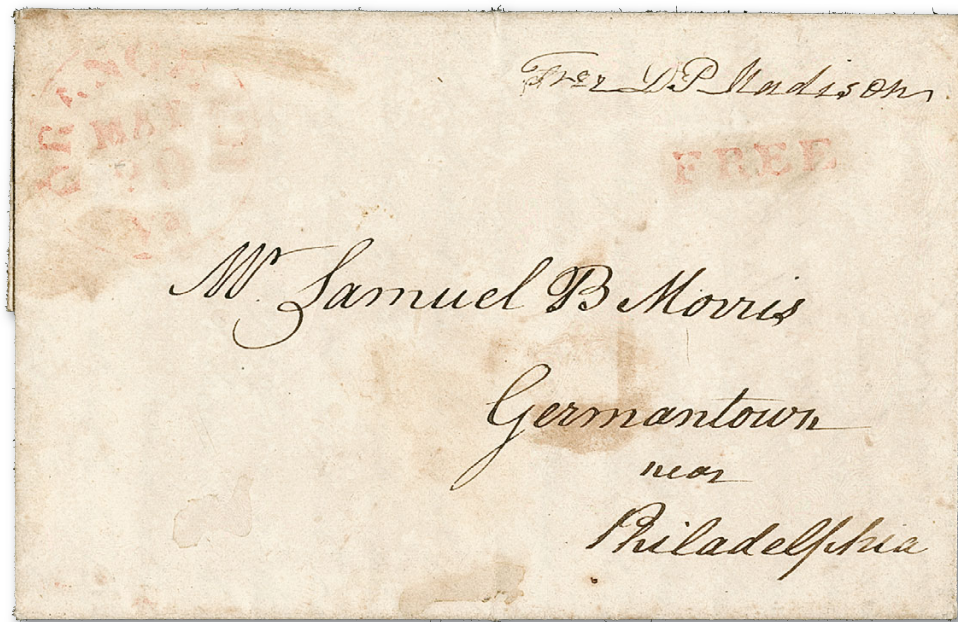 Free D P Madison
FREE
ORANGE
MAY
20
Mr. Samuel B Morris
Germantown
near
Philadelphia